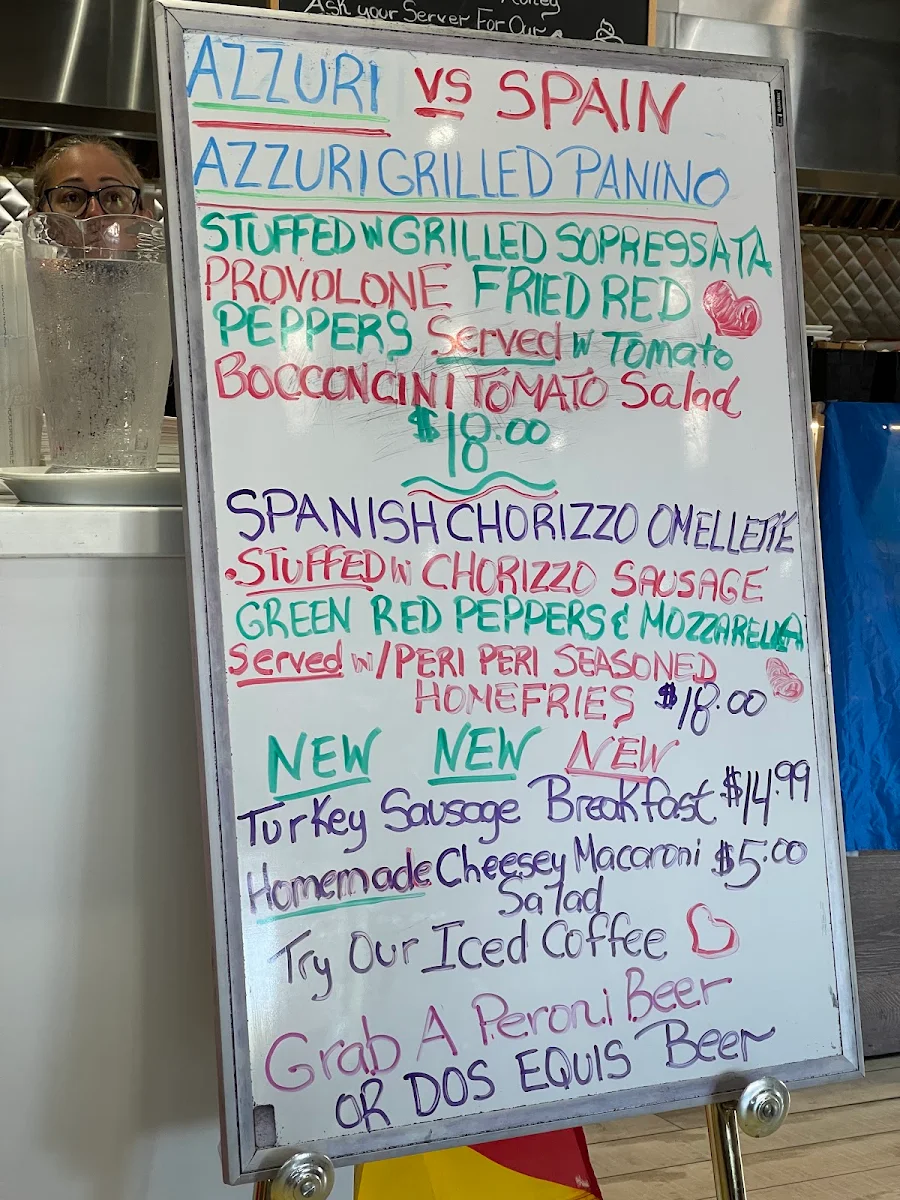 Ask your Server For Our
AZZURI VS SPAIN
AZZURI GRILLED PANINO
STUFFED W GRILLED SOPRESSATA
PROVOLONE FRIED RED
PEPPERS Served W Tomato
BOCCONCINI TOMATO Salad
$18.00
SPANISH CHORIZZO OMELLETTE
.STUFFED W CHORIZZO SAUSAGE
GREEN RED PEPPERS & MOZZARELLA
Served w/PERI PERI SEASONED
HOMEFRIES $18.00
NEW NEW NEW
Turkey Sausage Breakfast $14.99
Homemade Cheesey Macaroni $5.00
Salad
Try Our Iced Coffee
Grab A Peroni Beer
OR DOS EQUIS Beer